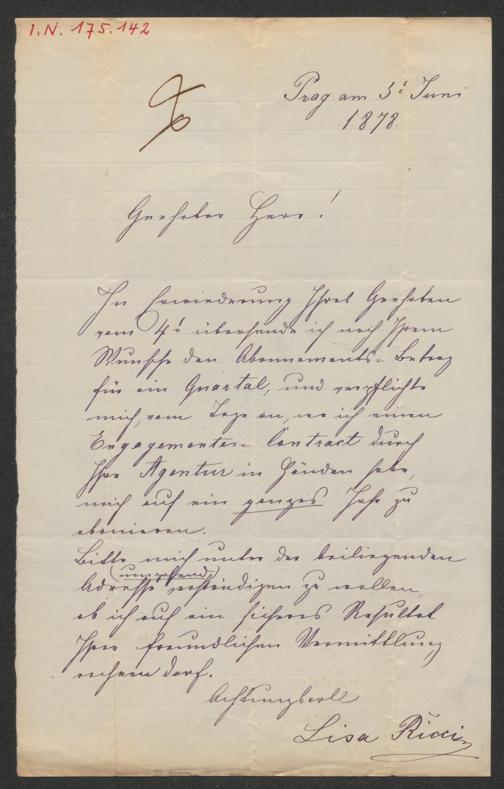 I.N. 175.142
Prag am 5t Juni
1878.
Geehrter Herr!
In Erwiederung Ihres Geehrten
vom 4t übersende ich nach Ihrem
Wunsche den Abonnements-Betrag
für ein Quartal, und verpflichte
mich, vom Tage an, wo ich einen
Engagementes-Contract durch
Ihre Agentur in Händen habe,
mich auf ein ganzes Jahr zu
abonieren.
Bitte mich unter der beiliegenden
(umgehend)
Adresse verständigen zu wollen,
ob ich auf ein sicheres Resultat
Ihrer freundlichen Vermittlung
rechnen darf.
Achtungsvoll
Lisa Ricci